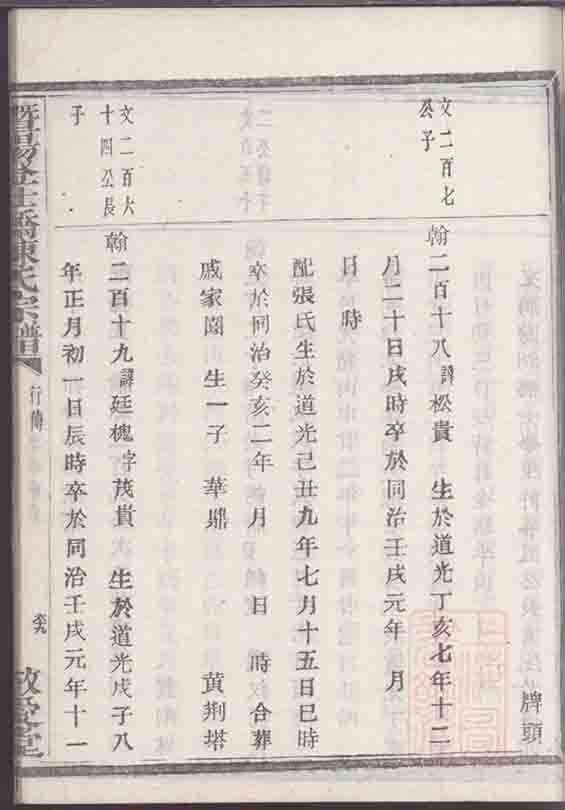 牌頭
文二百七
公子
翰二百十八諱松貴 生於道光丁亥七年十二
月二十日戌時卒於同治壬戌元年 月
日 時
配張氏生於道光己丑九年七月十五日巳時
卒於同治癸亥二年 月 日 時合葬
戚家園 生一子 華鼎 黄荆塔
文二百六
十四公長
子
翰二百十九諱廷槐字茂貴 生於道光戊子八
年正月初一日辰時卒於同治壬戌元年十一
陳氏宗譜
行傳